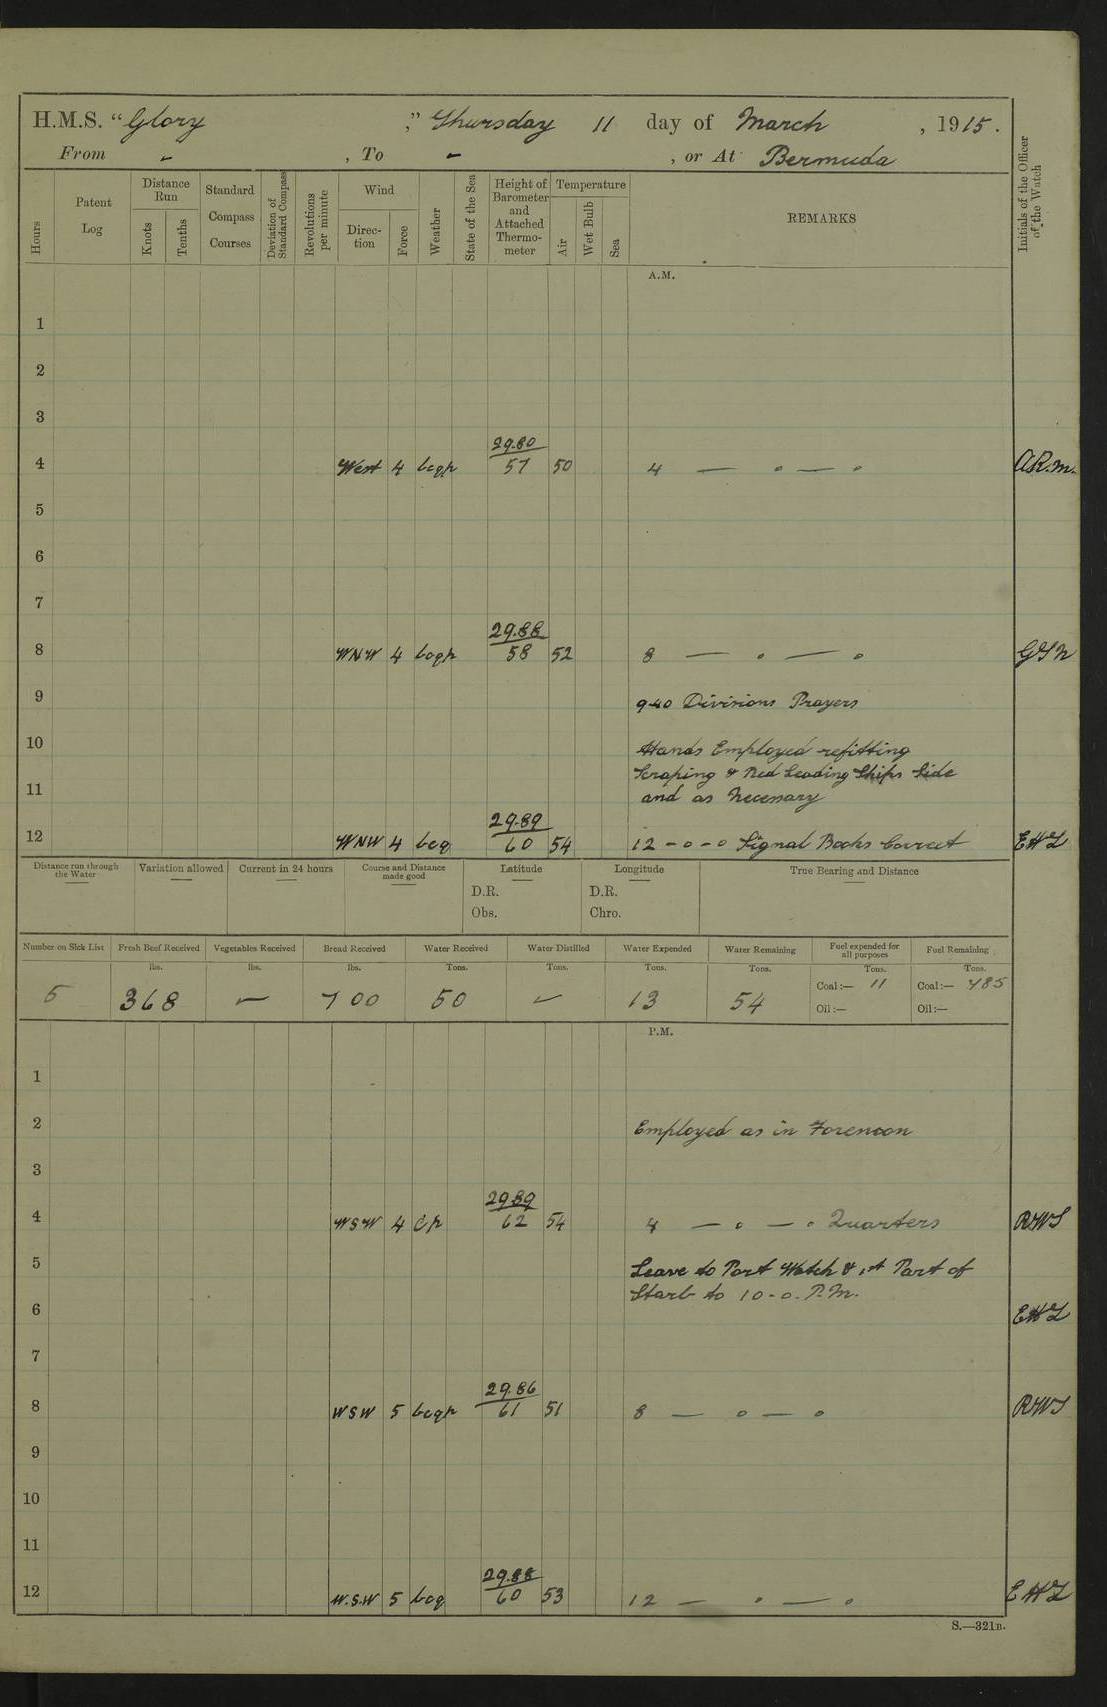 H.M.S. “Glory ,” Thursday 11 day of March , 1915.
From - , To - , or At Bermuda
Hours
Patent Log
Distance Run
Knots
Tenths
Standard Compass Courses
Deviation of Standard Compass
Revolutions per minute
Wind
Direction
Force
Weather
State of the Sea
Height of Barometer and Attached Thermometer
Temperature
Air
Wet Bulb
Sea
REMARKS
Initials of the Officer of the Watch
A.M.
1
2
3
29.80
4 West 4 bcqp 57 50 4 — o — o A.R.M.
5
6
7
29.88
8 WNW 4 bcqp 58 52 8 — o — o
9 9-40 Divisions Prayers
10 Hands Employed refitting
Scraping & Red Leading Ships Side
11 and as Necessary
29.89
12 WNW 4 bcq 60 54 12 - o - o Signal Books Correct
Distance run through the Water
Variation allowed
Current in 24 hours
Course and Distance made good
Latitude
D.R.
Obs.
Longitude
D.R.
Chro.
True Bearing and Distance
Number on Sick List Fresh Beef Received Vegetables Received Bread Received Water Received Water Distilled Water Expended Water Remaining Fuel expended for all purposes Fuel Remaining
lbs. lbs. lbs. Tons. Tons. Tons. Tons. Tons. Tons.
5 368 - 700 50 - 13 54 Coal:— 11 Coal:— 485
Oil:— Oil:—
P.M.
1
2 Employed as in Forenoon
3
29.89
4 WSW 4 cp 62 54 4 — o — o Quarters RWS
5 Leave to Port Watch & 1st Part of
Starb to 10-0. P.M.
6
7
29.86
8 WSW 5 bcqp 61 51 8 — o — o RWS
9
10
11
29.88
12 W.S.W 5 bcq 60 53 12 — o — o
S.—321B.